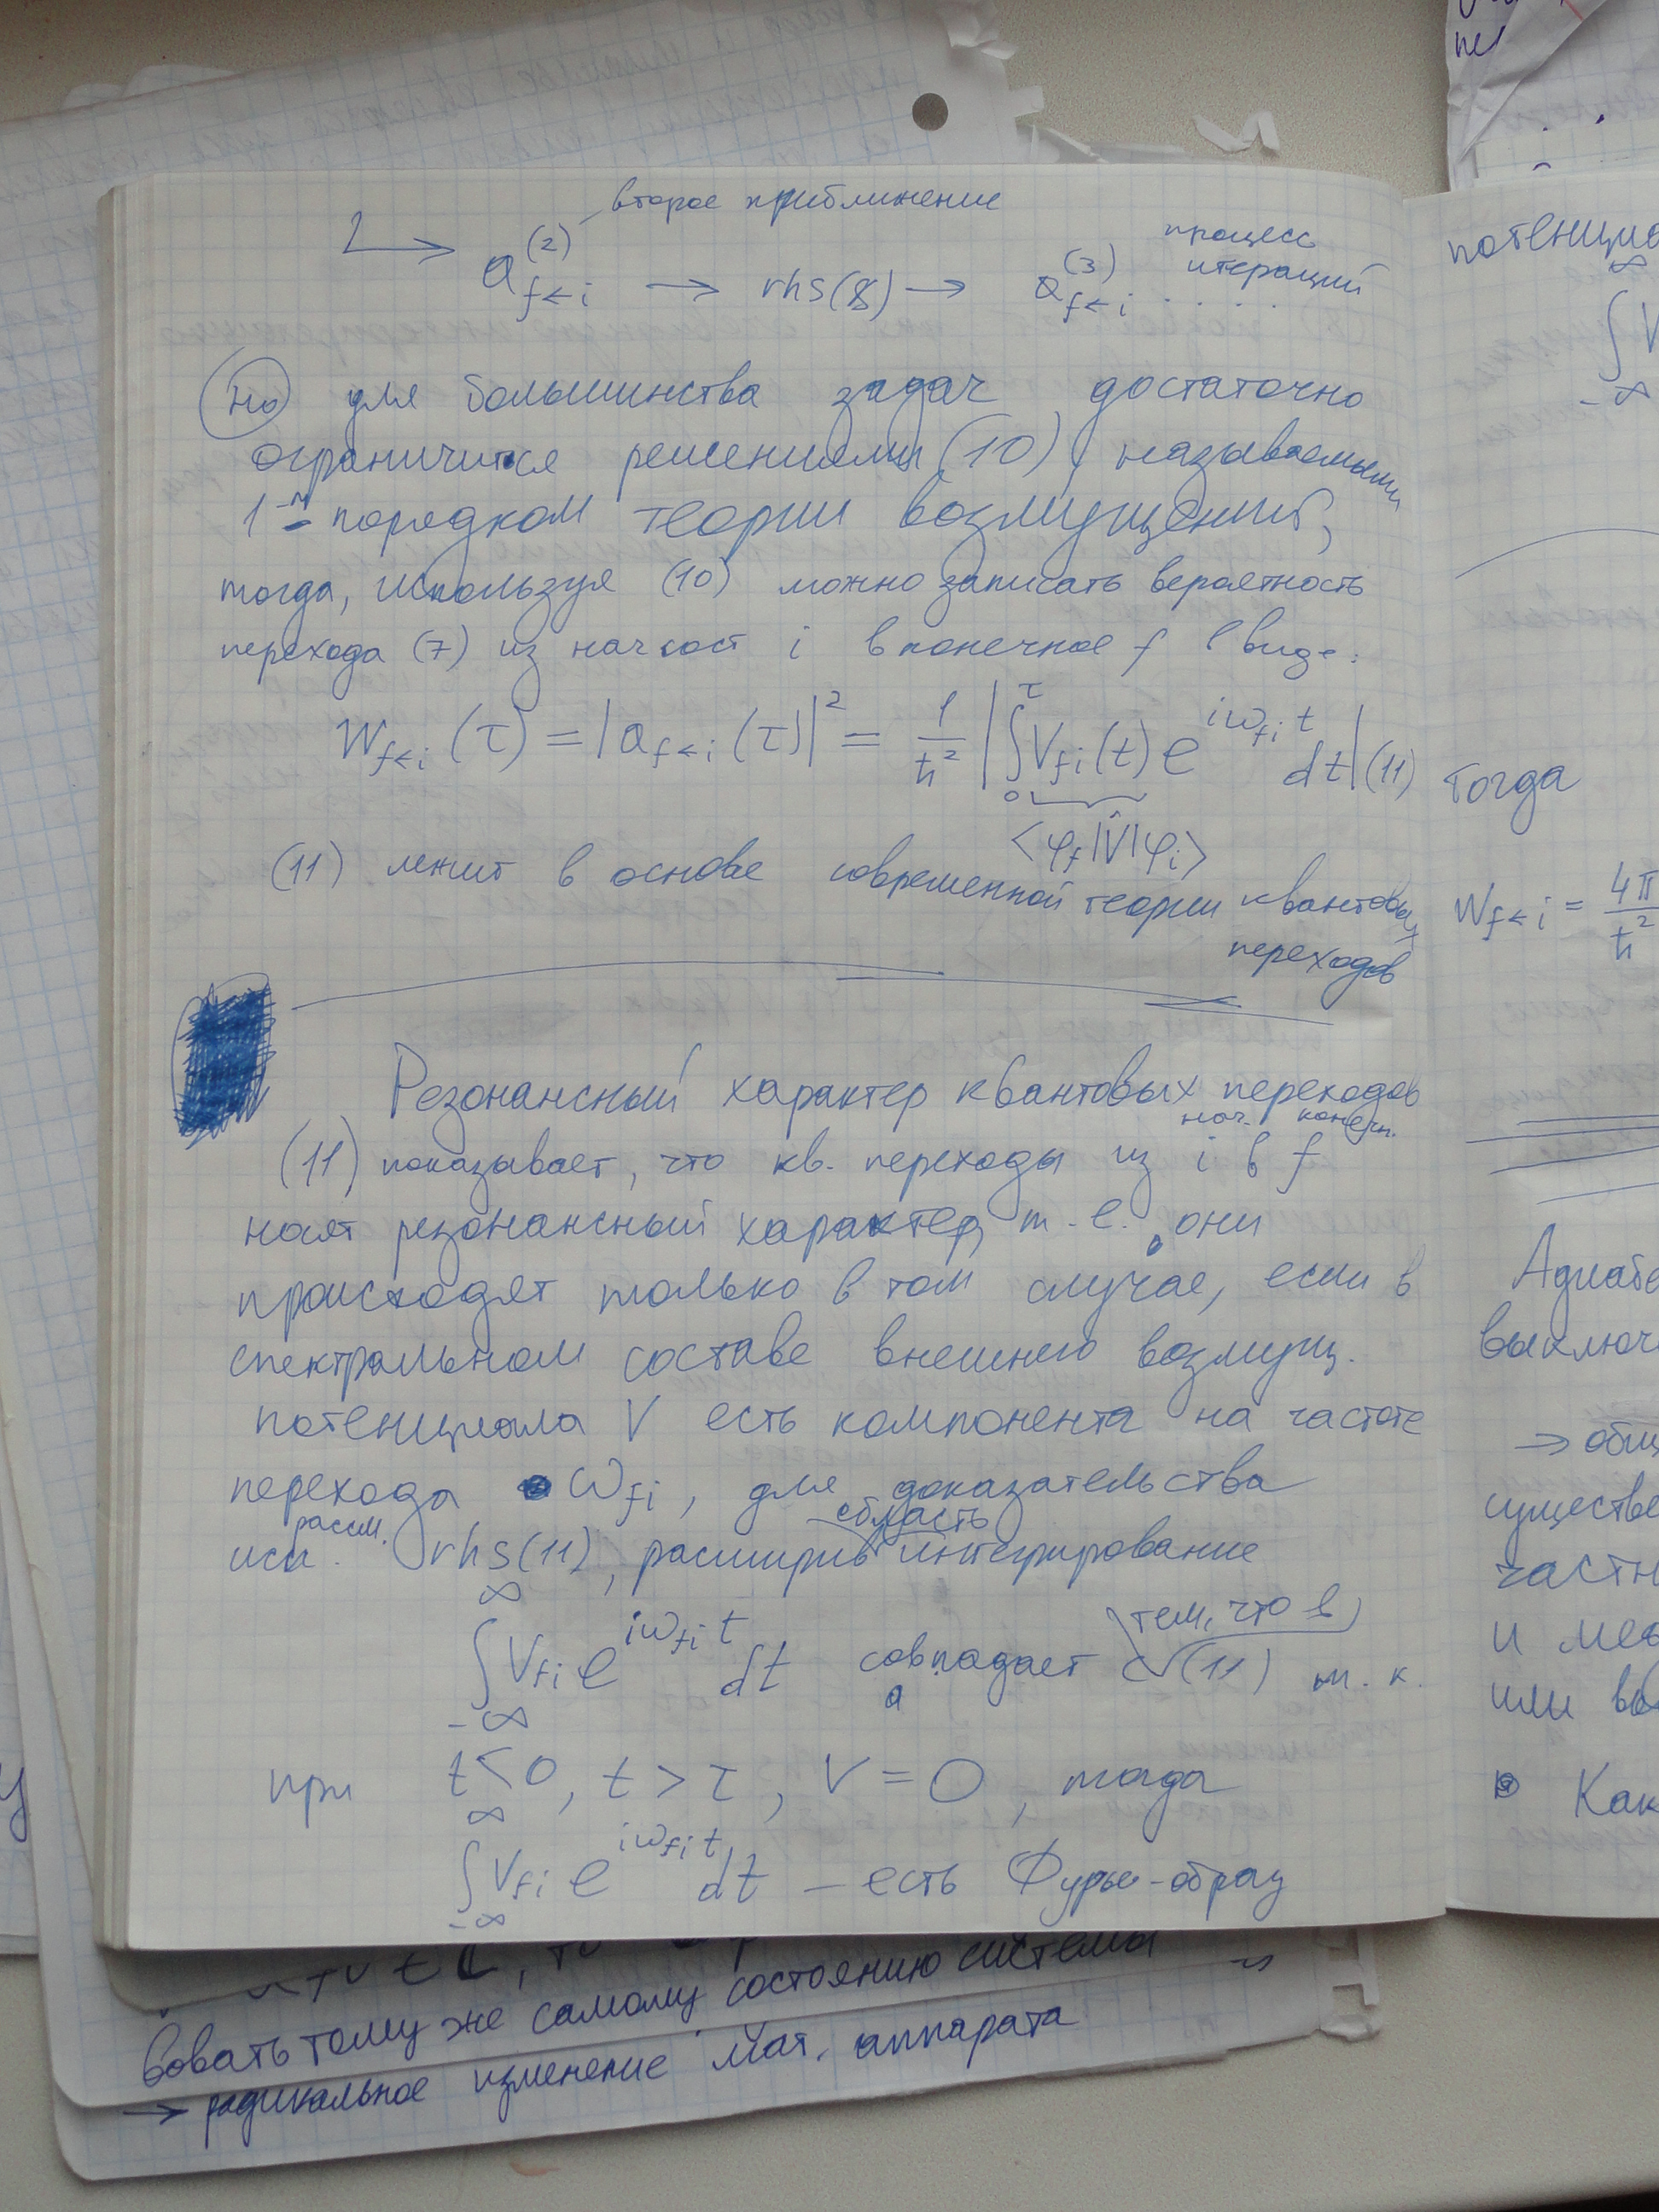 второе приближение
↳ a_{f←i}^{(2)} → rhs(8) → a_{f←i}^{(3)} ....
процесс
итераций
Но для большинства задач достаточно
ограничится решениями (10), называемыми
1-м порядком теории возмущений,
тогда, используя (10) можно записать вероятность
перехода (7) из нач сост i в конечное f в виде:
W_{f←i}(τ) = |a_{f←i}(τ)|² = 1/ħ² |∫₀^τ V_{fi}(t) e^{iω_{fi}t} dt| (11)
⟨φ_f|V̂|φ_i⟩
(11) лежит в основе современной теории квантовых
переходов
Резонансный характер квантовых переходов
нач. конечн.
(11) показывает, что кв. переходы из i в f
носят резонансный характер, т.е. они
происходят только в том случае, если в
спектральном составе внешнего возмущ.
потенциала V есть компонента на частоте
перехода ω_{fi}, для доказательства
рассм. область
исп. rhs(11), расширив интегрирование
∫_{-∞}^{∞} V_{fi} e^{iω_{fi}t} dt совпадает с (11) т.к.
тем, что в
при t<0, t>τ, V=0, тогда
∫_{-∞}^{∞} V_{fi} e^{iω_{fi}t} dt – есть Фурье-образ
потенциа
∫_{-∞}^{∞} V
Тогда
W_{f←i} = 4π/ħ²
Адиаба
выключ
→ общ
существе
частн
и меж
или во
Как
вовать тому же самому состоянию системы
→ радикальное изменение мат. аппарата